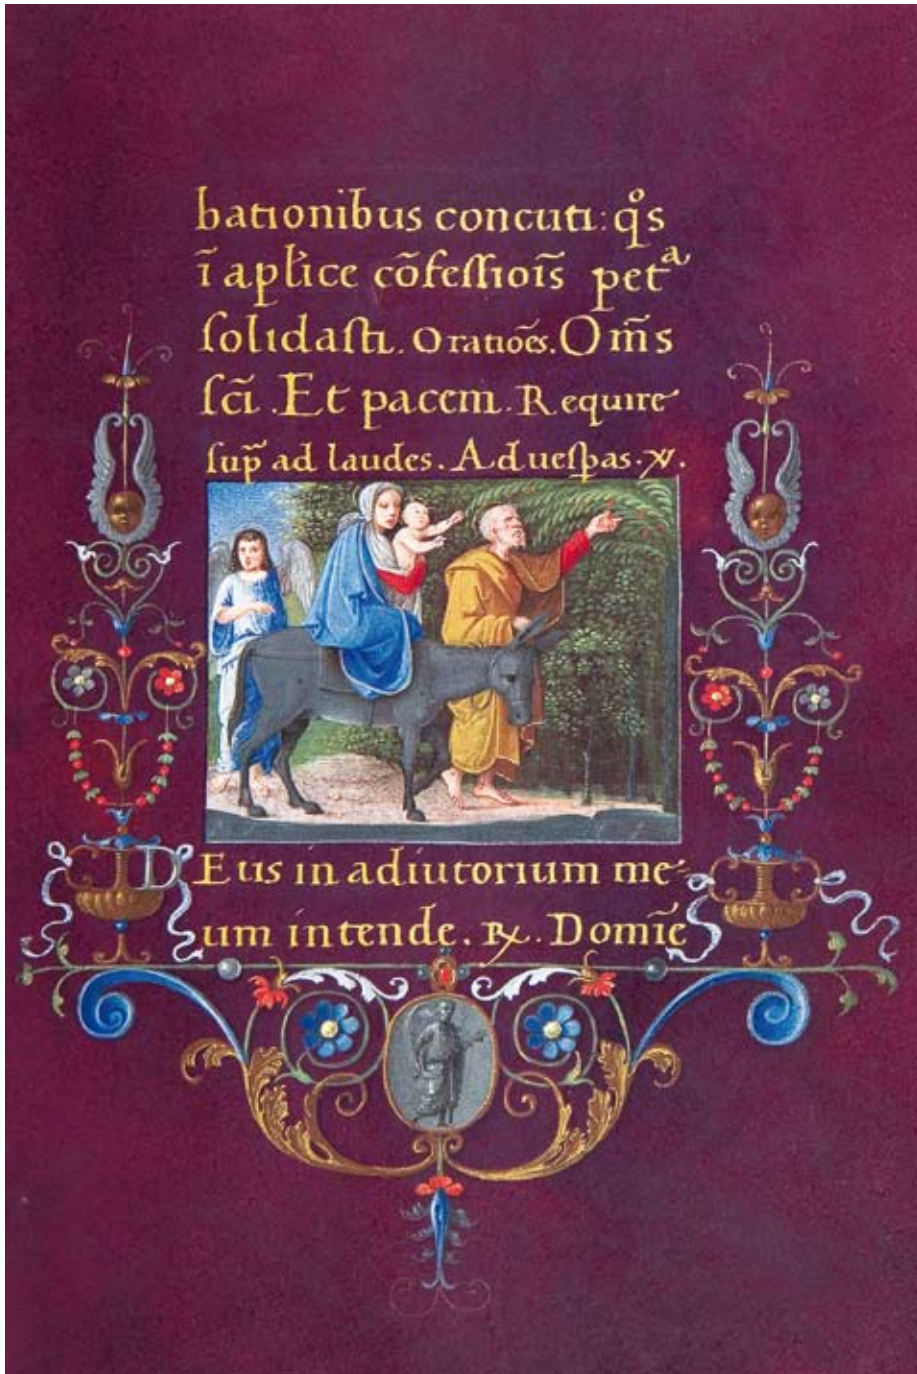 bationibus concuti: qͦs
ī apl'ice cōfessiois̄ petᵃ
solidasti. Oratiōēs. Om̄s
scī. Et pacem. Require
sup̄ ad laudes. Ad uesꝑas. ℣.
Deus in adiutorium me-
um intende. ℟. Domīe